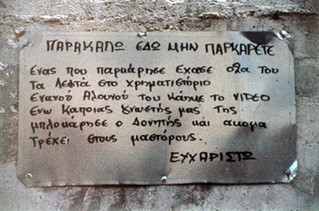 ΠΑΡΑΚΑΛΩ ΕΔΩ ΜΗΝ ΠΑΡΚΑΡΕΤΕ
Ένας που παρκάρησε Εχασε όλα του
Τα Λεφτά στο χρηματιστήριο
Ενανού Αλουνού του Κάηκε το VIDEO
Ενώ Καποιας Γνωστής μας Της
μπλοκάρησε ο Δονητής και ακομα
Τρέχει στους μαστόρους.
ΕΥΧΑΡΙΣΤΩ